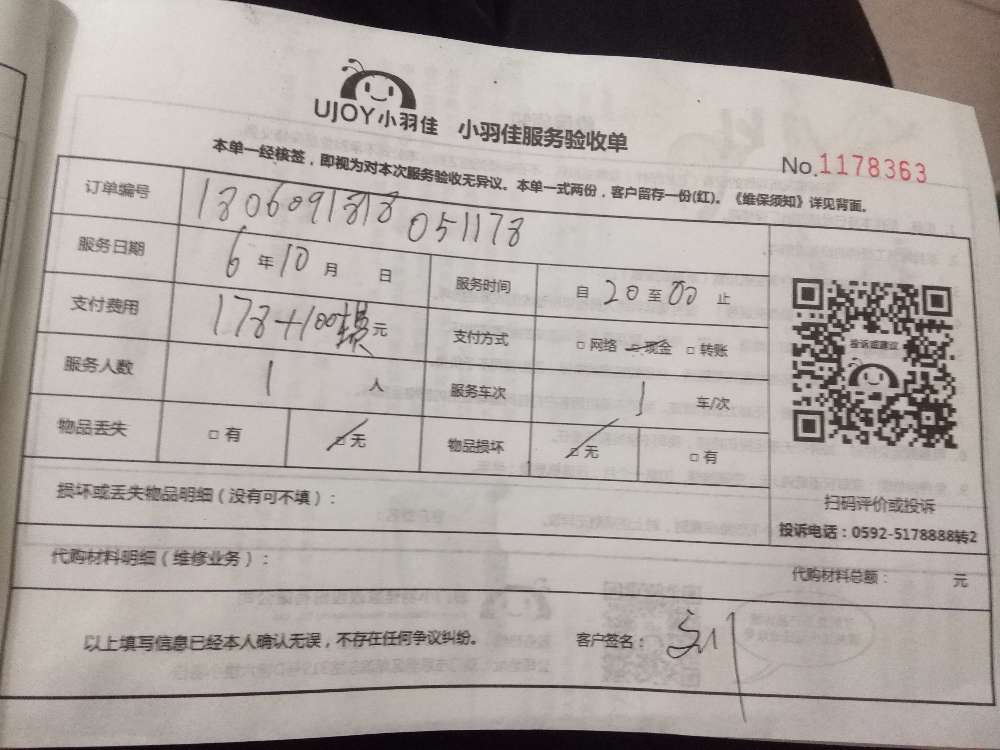 UJOY小羽佳 小羽佳服务验收单
No.1178363
本单一经核签，即视为对本次服务验收无异议。本单一式两份，客户留存一份(红)。《维保须知》详见背面。
订单编号 1806091818051178
服务日期 6 年 10 月 日 服务时间 自 20 至 00 止
支付费用 178+100 元 支付方式 □ 网络 □ 现金 □ 转账
服务人数 1 人 服务车次 1 车/次
物品丢失 □ 有 □ 无 物品损坏 □ 无 □ 有
投诉或建议
扫码评价或投诉
投诉电话：0592-5178888转2
损坏或丢失物品明细（没有可不填）：
代购材料明细（维修业务）： 代购材料总额： 元
以上填写信息已经本人确认无误，不存在任何争议纠纷。 客户签名：